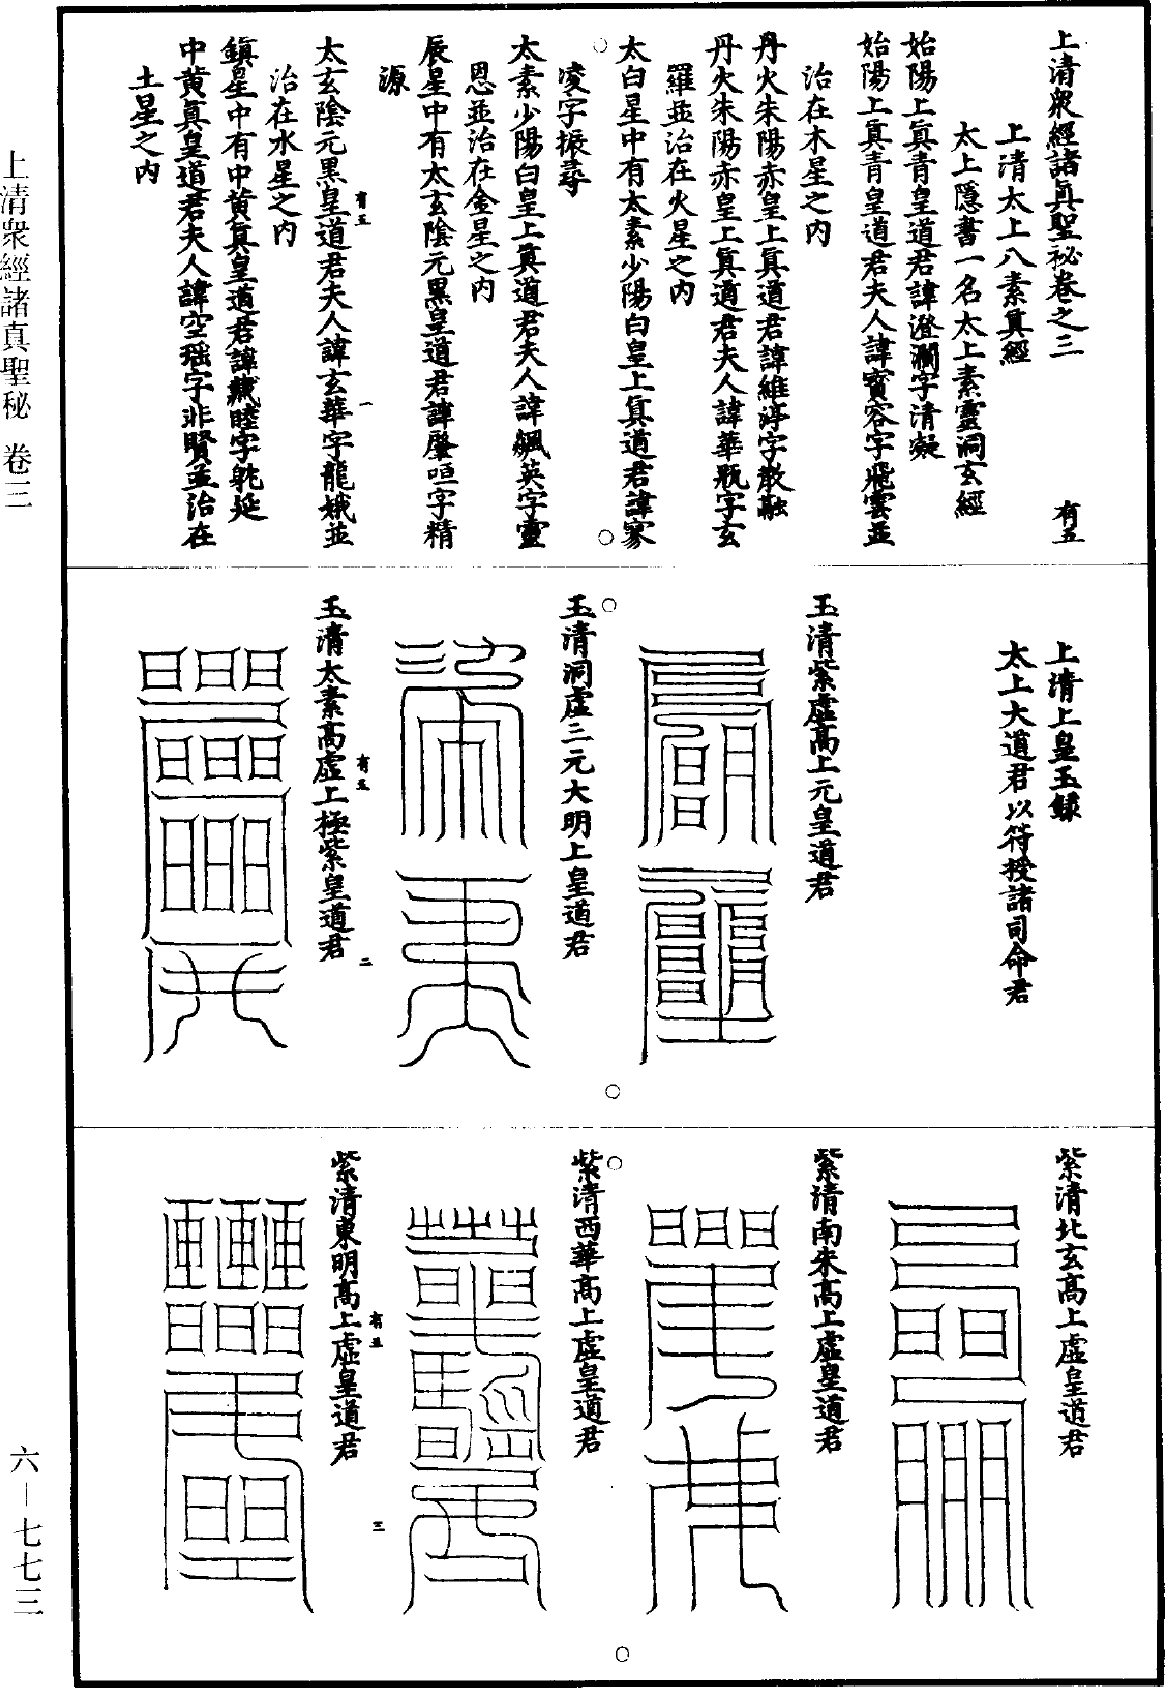 上清衆經諸眞聖祕卷之三
有五
上清太上八素眞經
太上隱書一名太上素靈洞玄經
始陽上眞青皇道君諱澄瀾字清凝
始陽上眞青皇道君夫人諱寳容字飛雲並
治在木星之内
丹火朱陽赤皇上眞道君諱維渟字散融
丹火朱陽赤皇上眞道君夫人諱華瓶字玄
羅並治在火星之内
太白星中有太素少陽白皇上眞道君諱寥
凌字振尋
太素少陽白皇上眞道君夫人諱飆英字靈
恩並治在金星之内
辰星中有太玄陰元黑皇道君諱肇咺字精
源
太玄陰元黑皇道君夫人諱玄華字龍娥並
治在水星之内
鎮星中有中黄眞皇道君諱藏睦字躭延
中黄眞皇道君夫人諱空瑶字非賢並治在
土星之内
有五
一
上清上皇玉籙
太上大道君以符授諸司命君
玉清紫虛高上元皇道君
玉清洞虛三元大明上皇道君
玉清太素高虛上極紫皇道君
有五
二
紫清北玄高上虛皇道君
紫清南朱高上虛皇道君
紫清西華高上虛皇道君
紫清東明高上虛皇道君
有五
三
上清衆經諸真聖秘 卷三
六—七七三